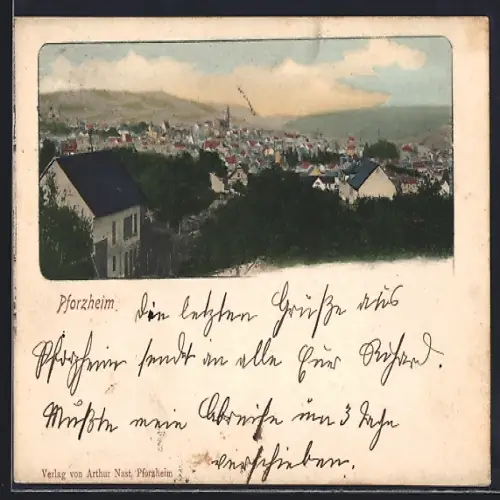 Pforzheim. Die letzten Grüße aus
Pforzheim sendet an alle Euer Richard.
Mußte meine Abreise um 3 Tage
verschieben.
Verlag von Arthur Nast, Pforzheim